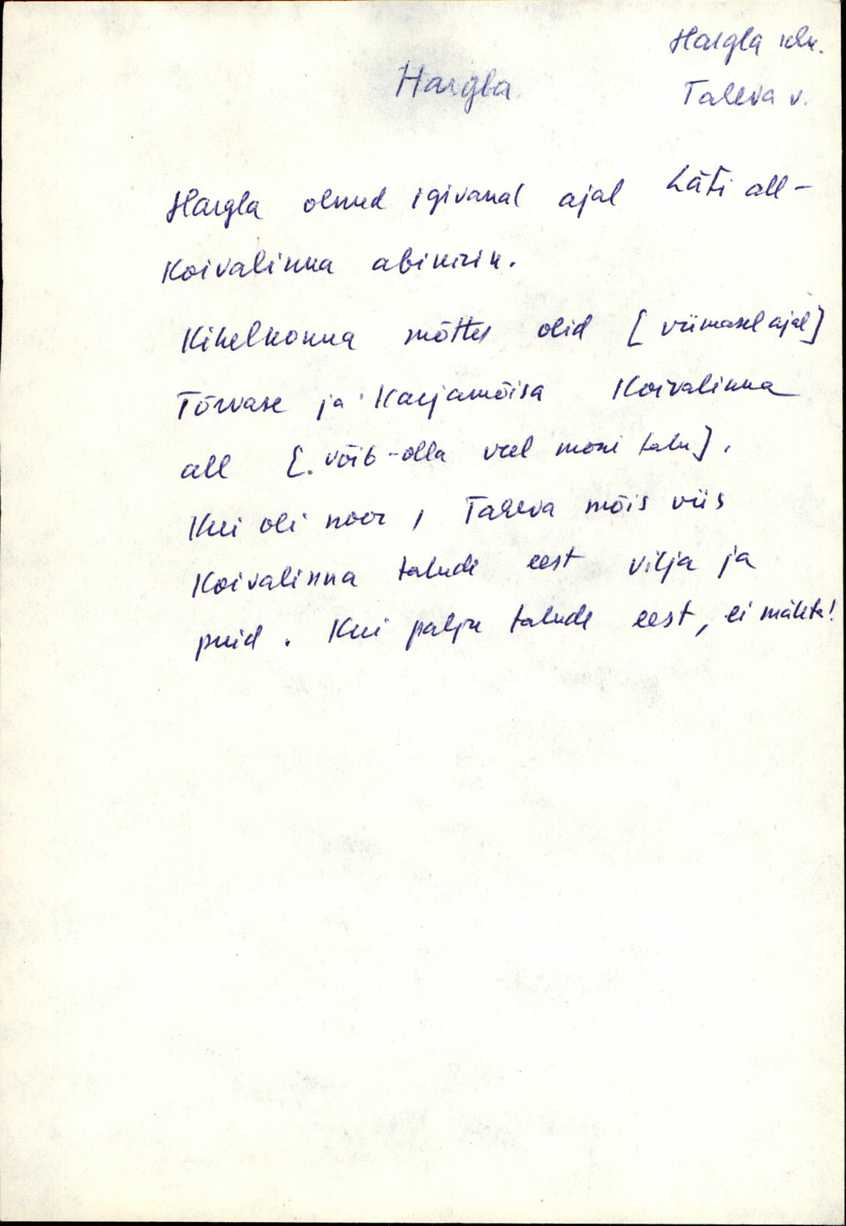 Hargla khk.
Hargla
Taheva v.
Hargla olnud igivanal ajal Läti all -
Koivalinna abikirik.
Kihelkonna mõttes olid [viimasel ajal]
Tõrvase ja Karjamõisa Koivalinna
all [. võib-olla veel mõni talu].
Kui oli noor, Taheva mõis viis
Koivalinna talude eest vilja ja
puid. Kui palju talude eest, ei mäleta!